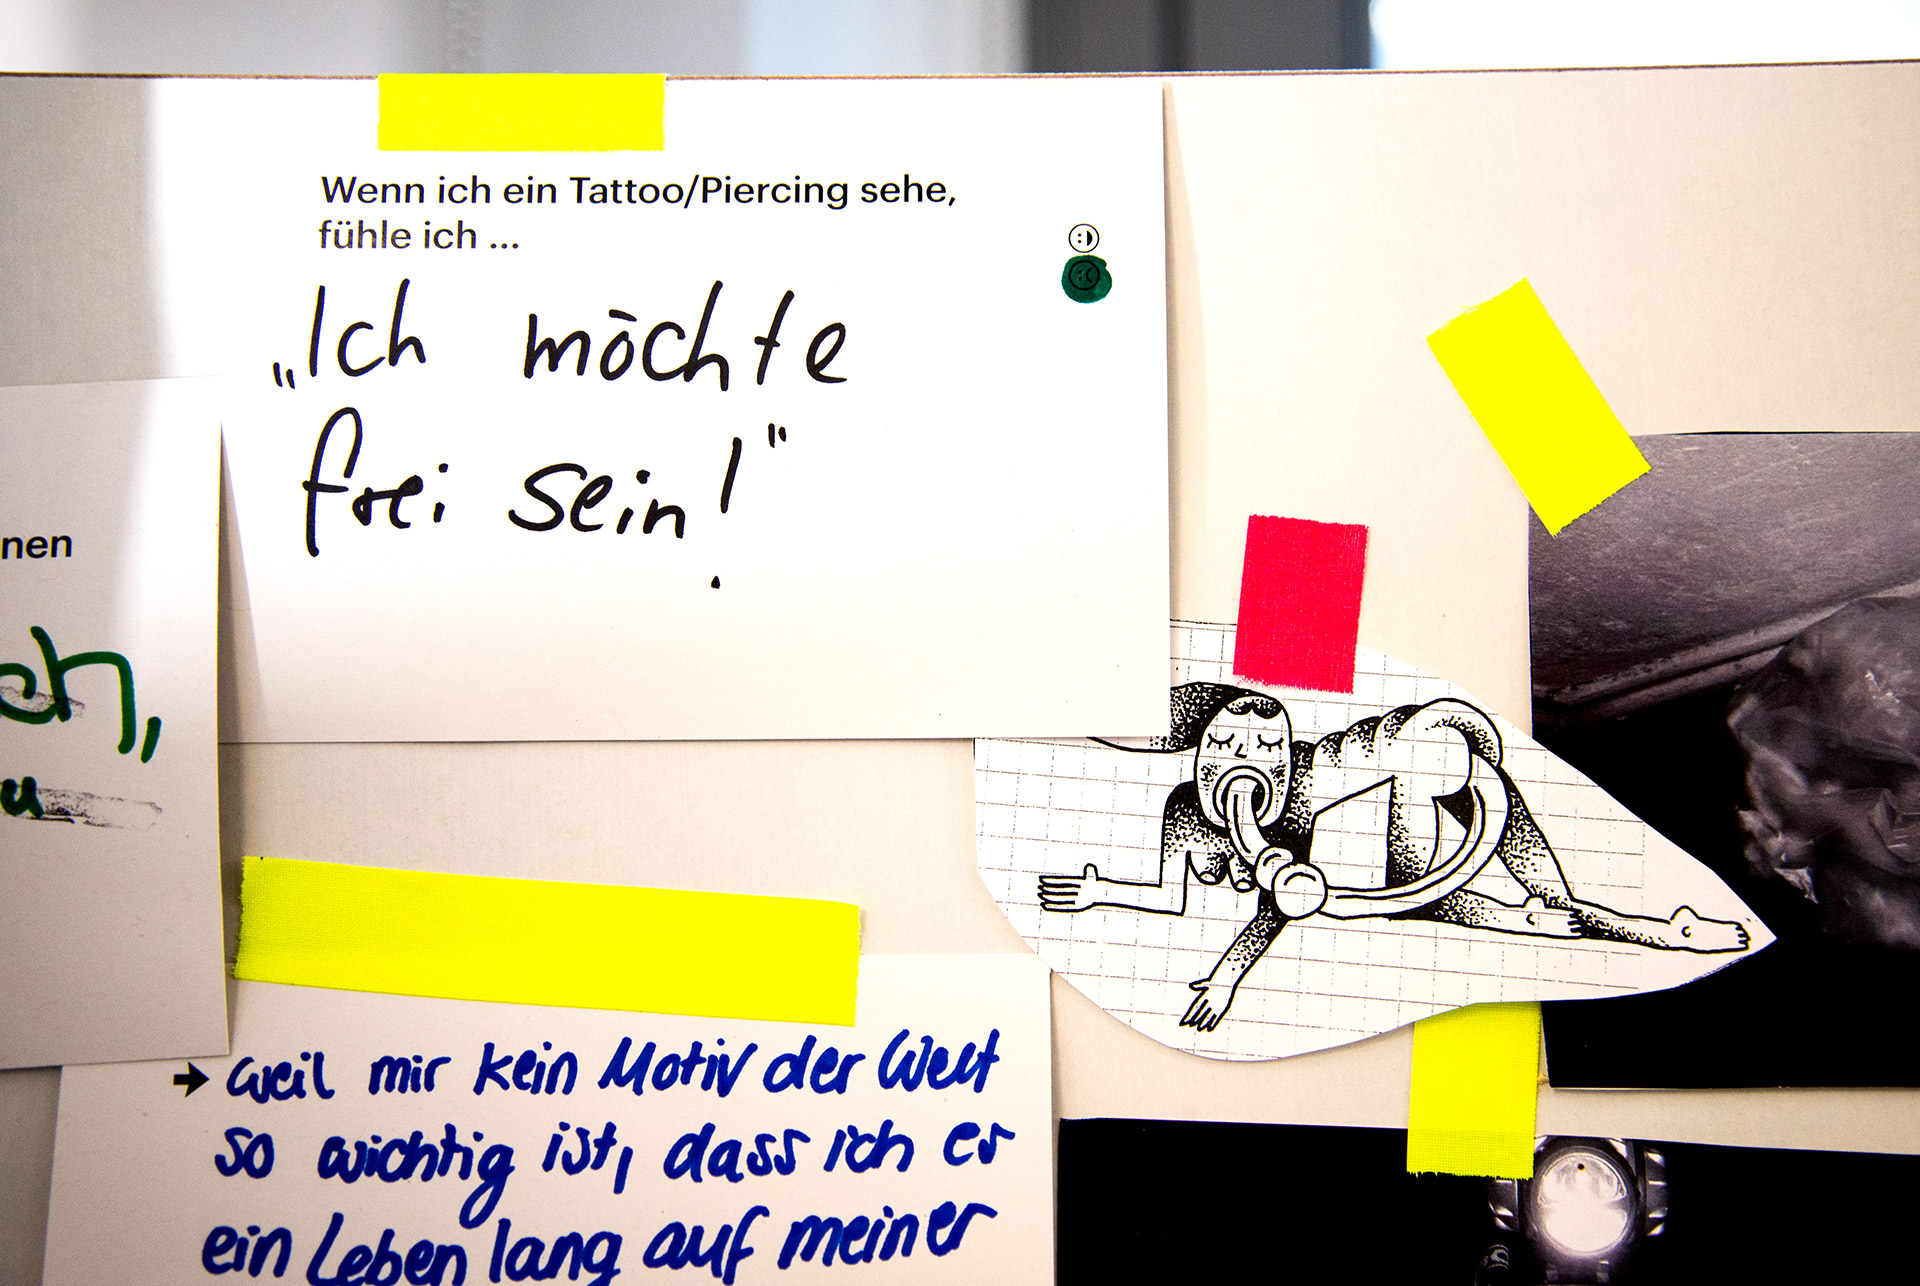 Wenn ich ein Tattoo/Piercing sehe,
fühle ich ...
„Ich möchte
frei sein!"
nen
ch,
u
→ weil mir kein Motiv der Welt
so wichtig ist, dass ich es
ein Leben lang auf meiner